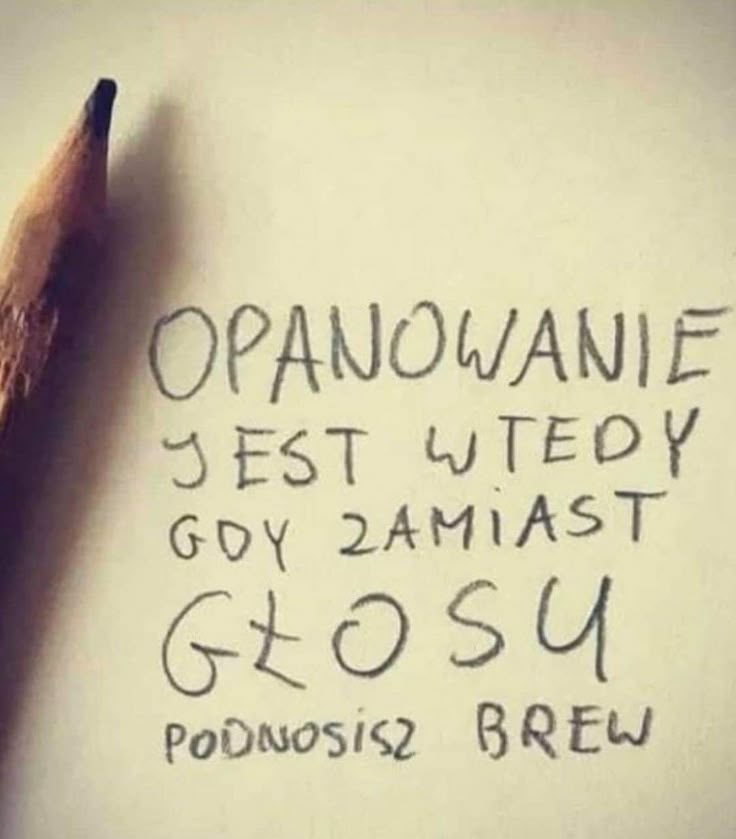 OPANOWANIE
JEST WTEDY
GDY ZAMiAST
GŁOSU
PODNOSiSZ BREW